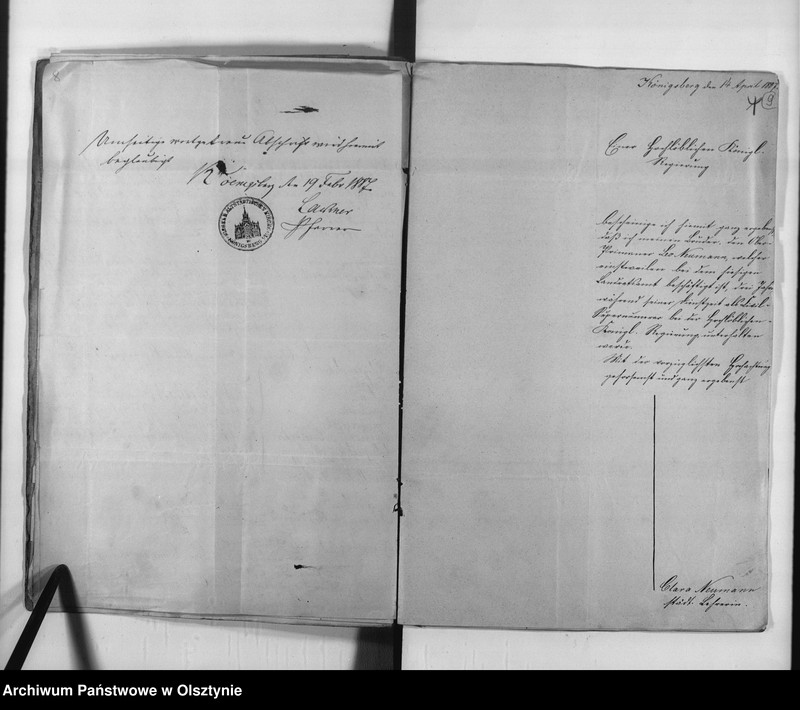 Umseitige wortgetreue Abschrift wird hiermit
beglaubigt
Königsberg den 19 Febr 1887
Lackner
Pfarrer
Königsberg den 14 April 1887.
9
Einer Hochlöblichen Königl.
Regierung
bescheinige ich hiermit ganz ergebenst,
daß ich meinen Bruder, den Ober-
Primaner Leo Neumann, welcher
einstweilen bei dem hiesigen
Landratsamt beschäftigt ist, drei Jahre
während seiner Dienstzeit als Civil-
Supernumerar bei der Hochlöblichen
Königl. Regierung unterhalten
werde.
Mit der vorzüglichsten Hochachtung
gehorsamst und ganz ergebenst
Clara Neumann
städt. Lehrerin.
Archiwum Państwowe w Olsztynie